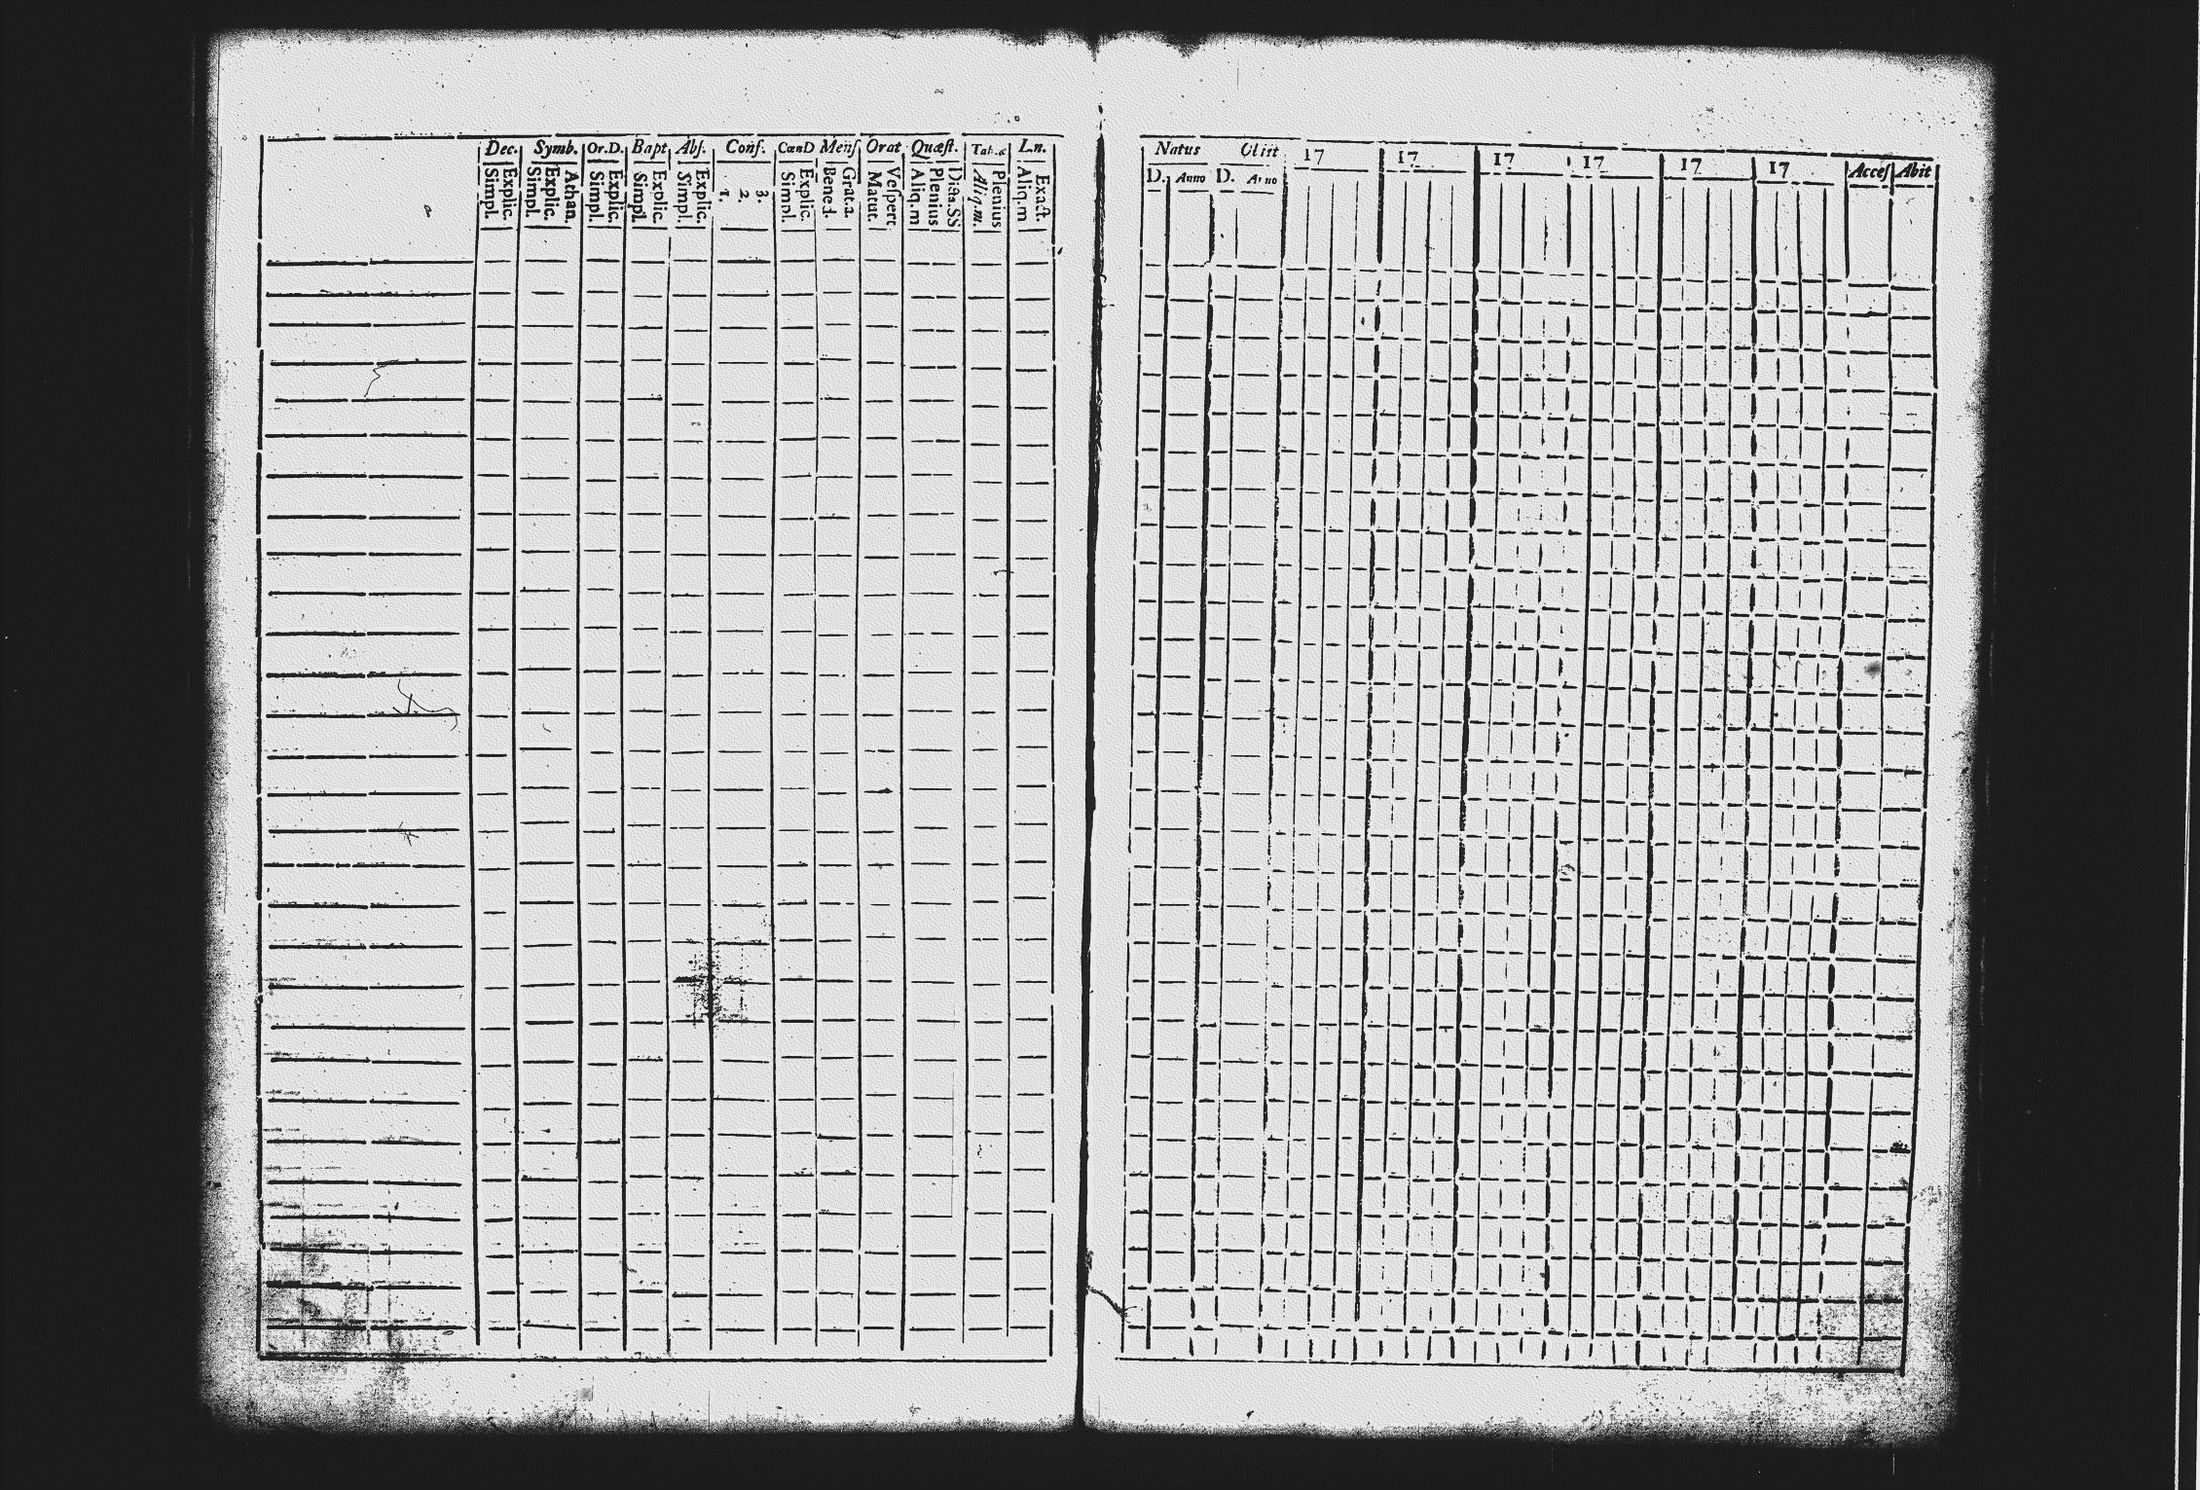 Dec. Symb. Or.D. Bapt Abſ. Conf. CœnD Menſ Orat Quæſt. Ln.
Simpl. Explic.
Simpl. Explic. Athan.
Simpl. Explic.
Simpl. Explic.
Simpl. Explic.
1. 2. 3.
Simpl. Explic.
Bened. Grat.a.
Matut. Veſpert
Aliq.m Plenius Dicta.SS
Aliq.m. Plenius
Aliq.m Exact.
Natus Obiit 17 17 17 17 17 17 Acceſ Abit
D. Anno D. Anno